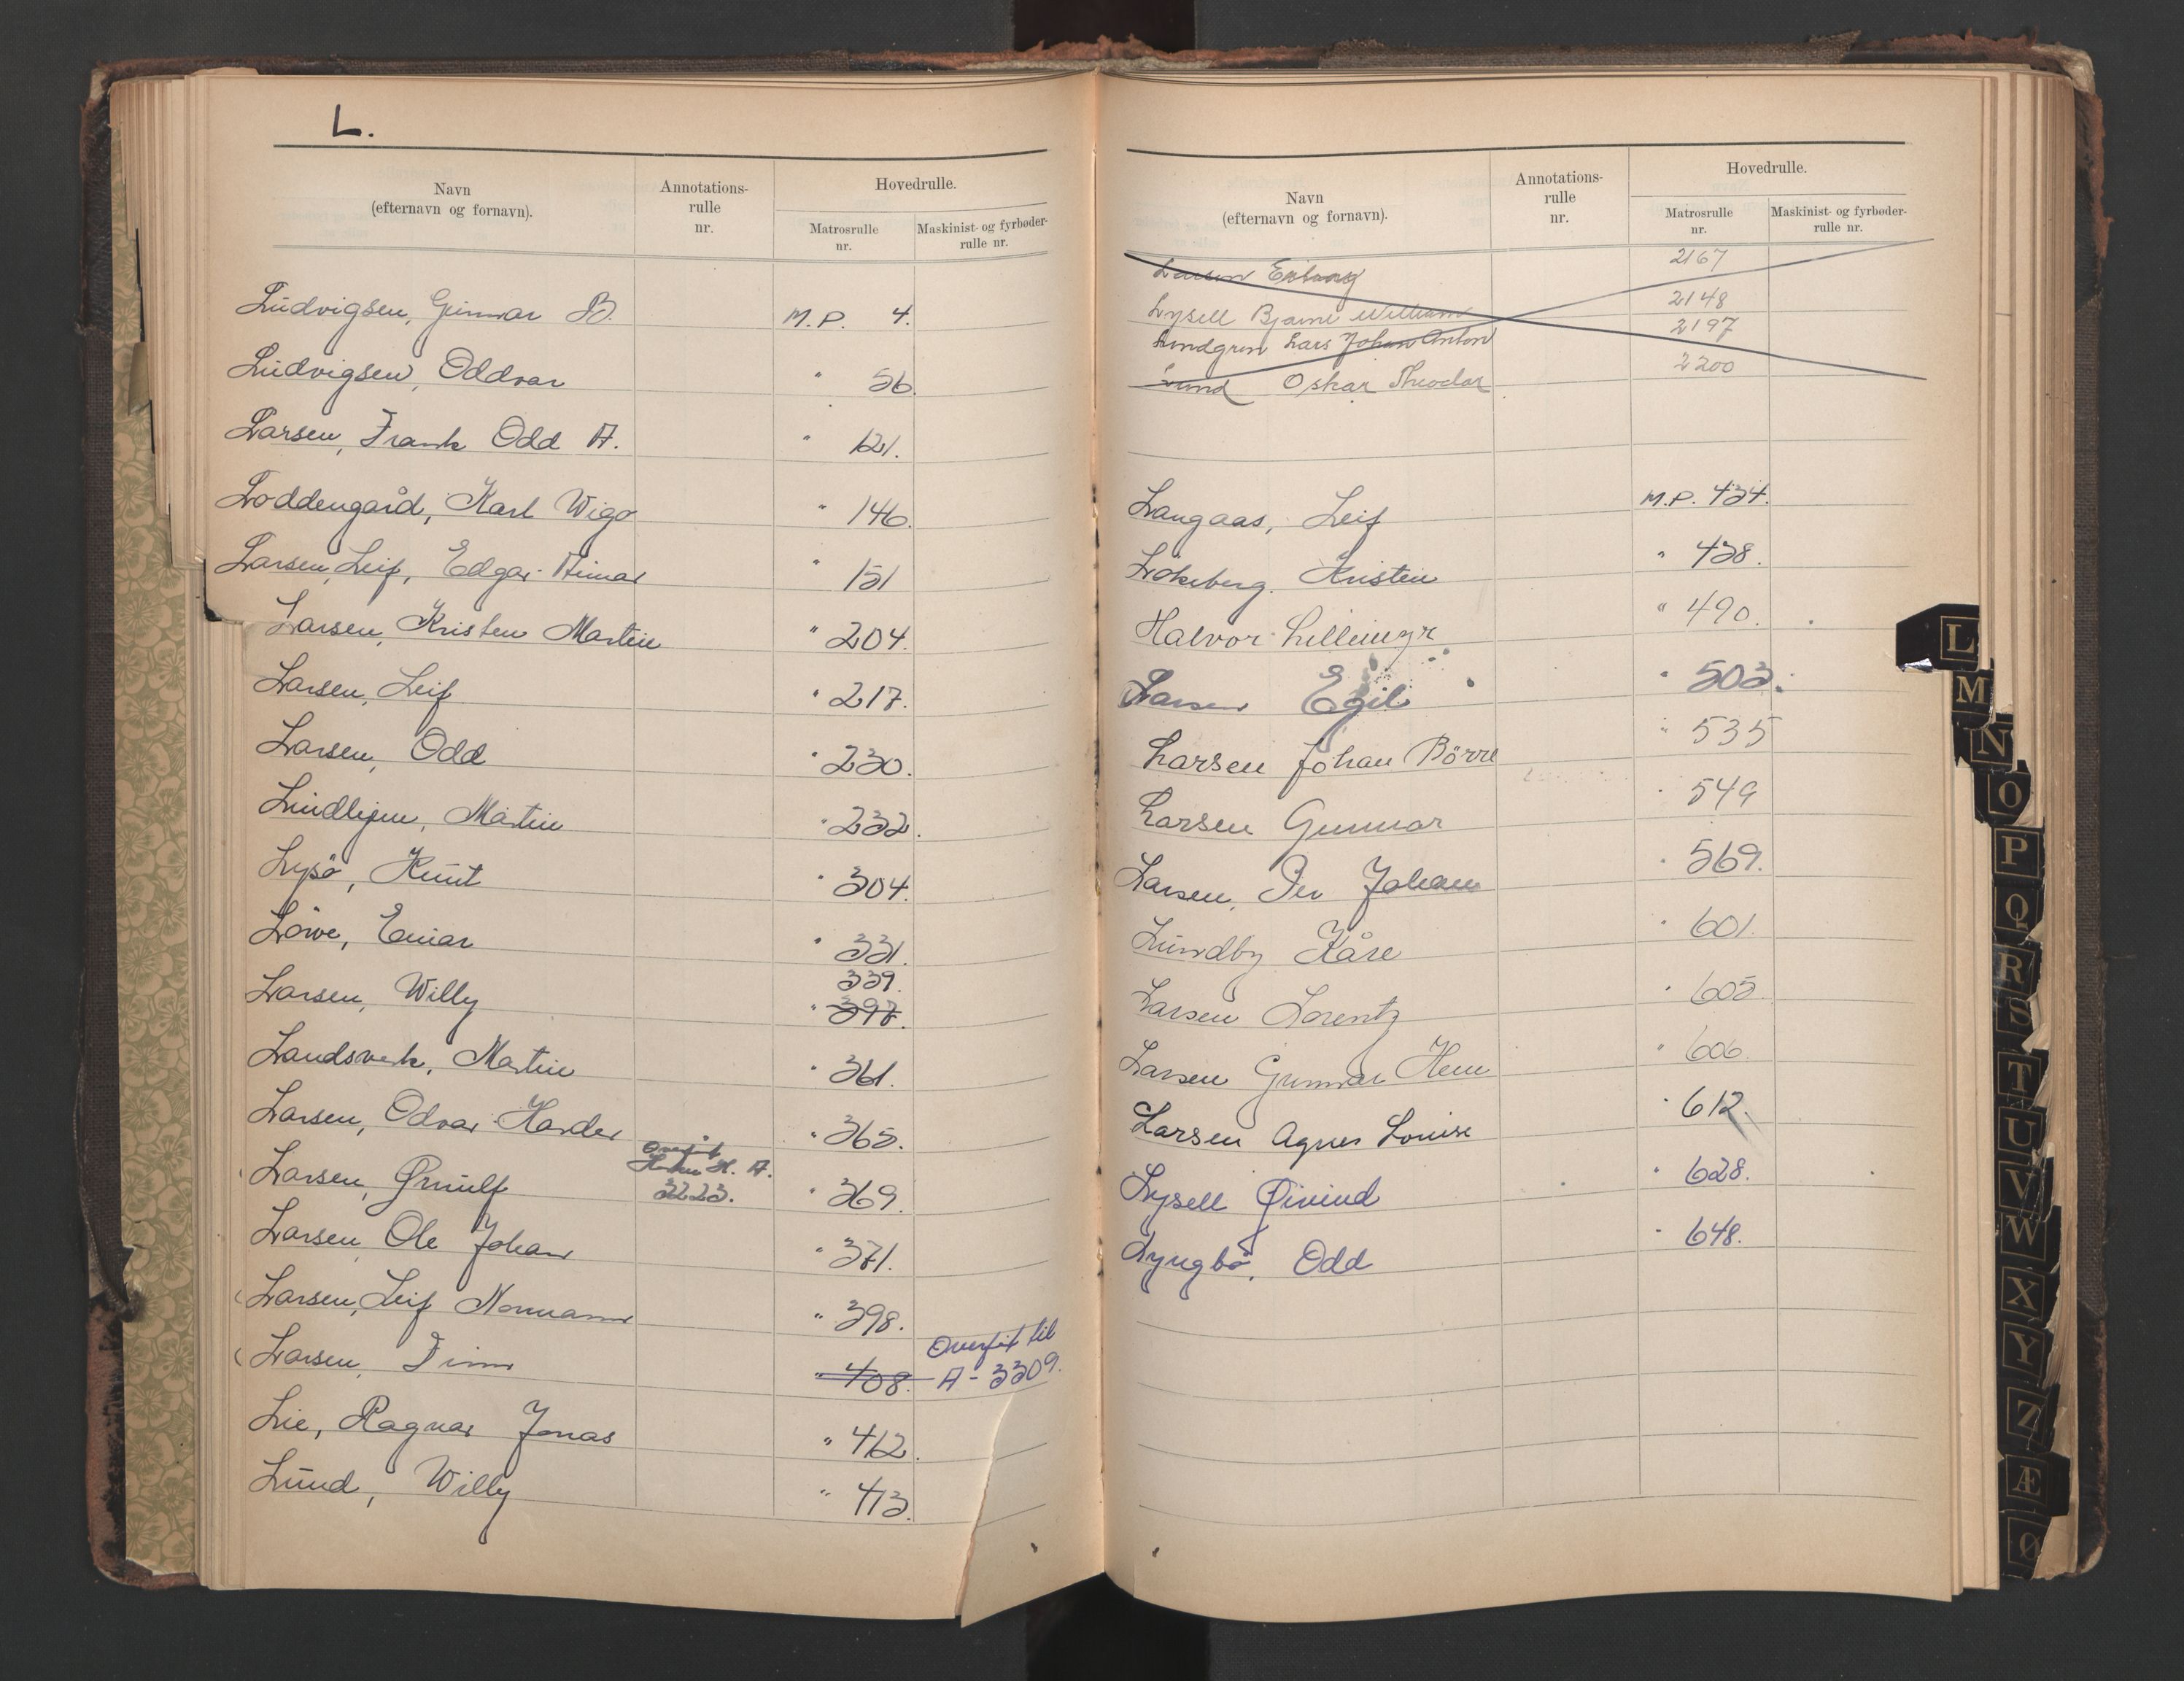 L.
Navn
(efternavn og fornavn).
Annotations-
rulle
nr.
Hovedrulle.
Matrosrulle
nr.
Maskinist- og fyrbøder-
rulle nr.
Ludvigsen, Gunnar B. M.P. 4.
Ludvigsen, Oddvar " 56.
Larsen, Frank Odd A. " 121.
Loddengård, Karl Wigo " 146.
Larsen, Leif, Edgar Aimar " 151
Larsen, Kristen Martin " 204.
Larsen, Leif " 217.
Larsen, Odd " 230.
Lindlijen, Martin " 232.
Lysö, Knut " 304.
Löwe, Einar " 331.
339.
Larsen, Willy " 397.
Landsverk, Martin " 361.
Larsen, Odvar Harder " 365.
Overført
H. A.
Larsen, Ørnulf 3223. " 369.
Larsen, Ole Johan " 371.
Larsen, Leif Normann " 398.
Overført til
Larsen, Finn " 408. A-3309.
Lie, Ragnar Jonas " 412.
Lund, Willy " 413.
Navn
(efternavn og fornavn).
Annotations-
rulle
nr.
Hovedrulle.
Matrosrulle
nr.
Maskinist- og fyrbøder-
rulle nr.
Larsen 2167
Lysell Bjarne William 2148
Lindgren Lars Johan Anton 2197
Lund Oskar Theodor 2200
Langaas, Leif M.P. 434.
Lökeberg, Kristen " 438.
Halvor Lillemyr " 490.
Larsen Egil " 503.
Larsen Johan Börre " 535
Larsen Gunnar " 549
Larsen, Per Johan " 569.
Lundby Kåre " 601.
Larsen Lorentz " 605.
Larsen Gunnar Hem " 606.
Larsen Agnes Louise " 612.
Lysell Øivind " 628.
Lyngbö, Odd " 648.
L
M
N
O
P
Q
R
S
T
U
V
W
X
Y
Z
Æ
Ø